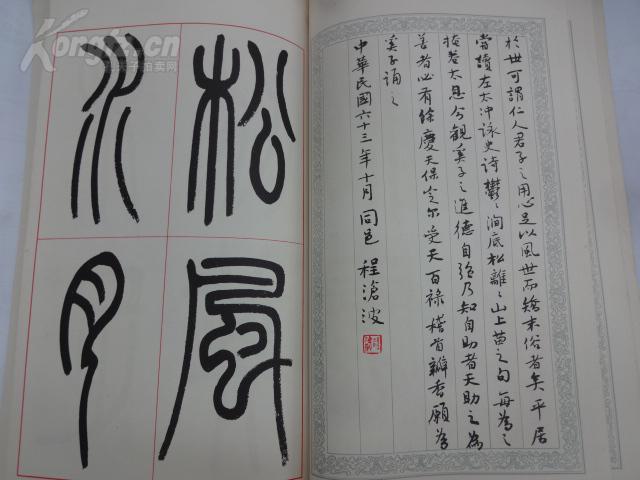 於世可謂仁人君子之用心足以風世而矯末俗者矣平居
嘗讀左太沖詠史詩鬱鬱澗底松離離山上苗之句每為之
掩卷太息今觀奚子之進德自強乃知自助者天助之為
善者必有餘慶天保定爾受天百祿稽首瓣香願為
奚子誦之
中華民國六十三年十月同邑程滄波
松風
水月
Kongfz.cn
孔夫子拍卖网